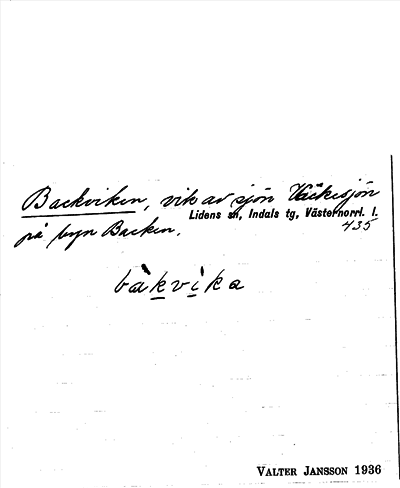 Backviken, vik av sjön Väckesjön
Lidens sn, Indals tg, Västernorrl. l.
på byn Backen.
435
bàkvìka
VALTER JANSSON 1936